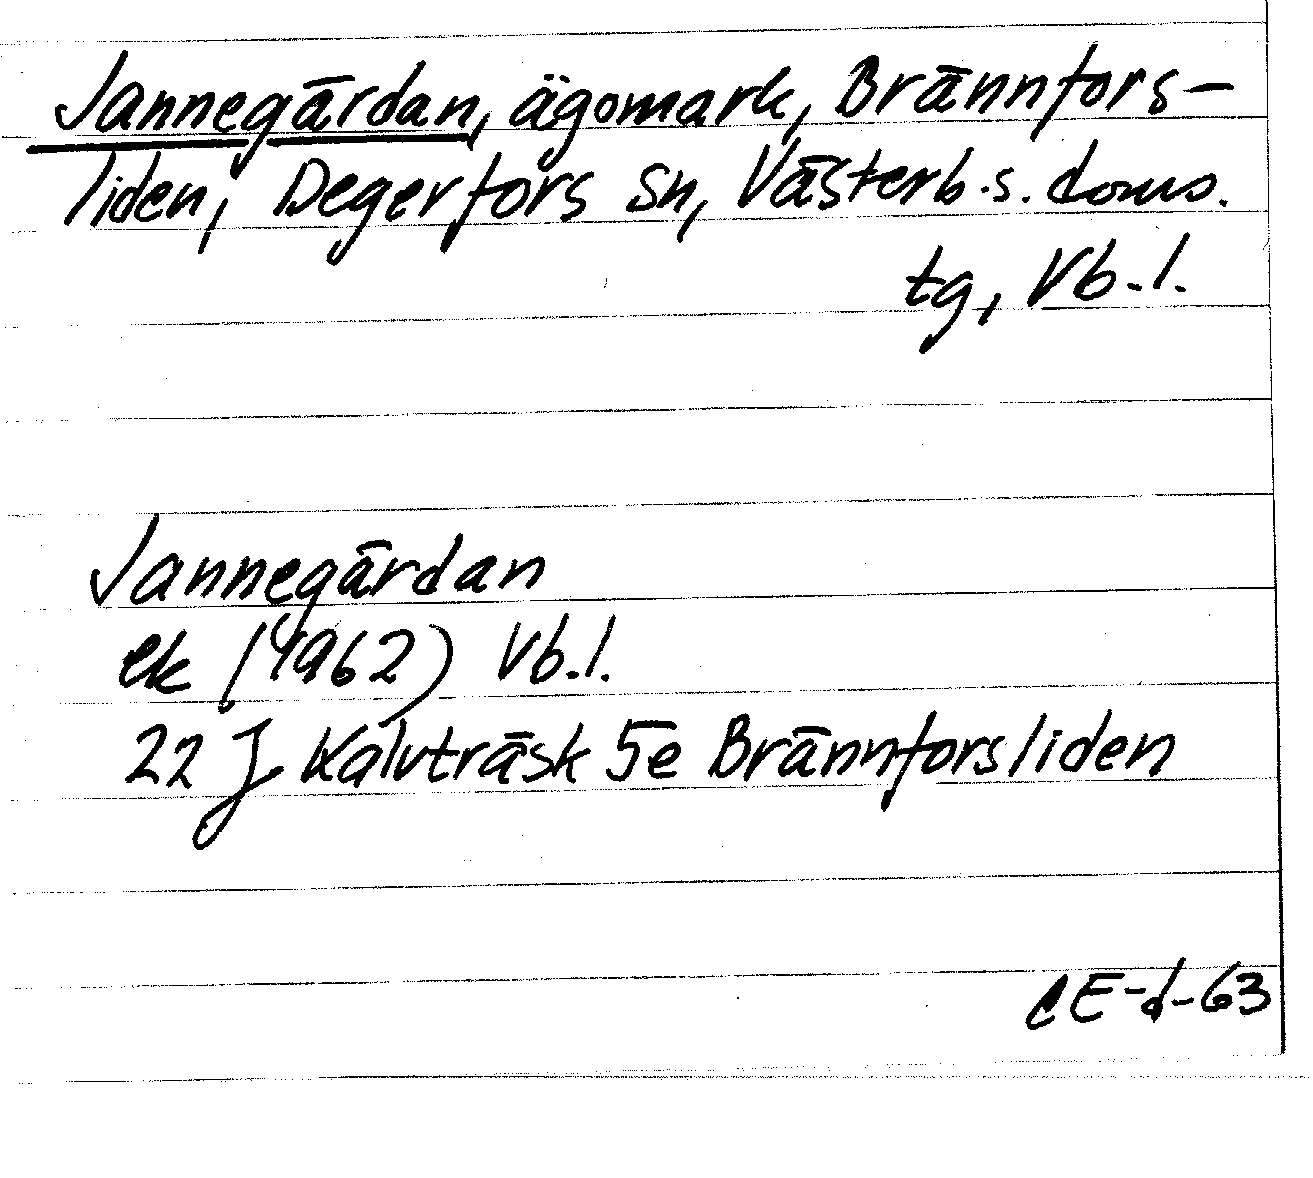 Jannegärdan, ägomark, Brännfors-
liden, Degerfors sn, Västerb.s. doms.
tg, Vb.l.
Jannegärdan
ek (1962) Vb.l.
22 J Kalvträsk 5e Brännforsliden
CE-d-63